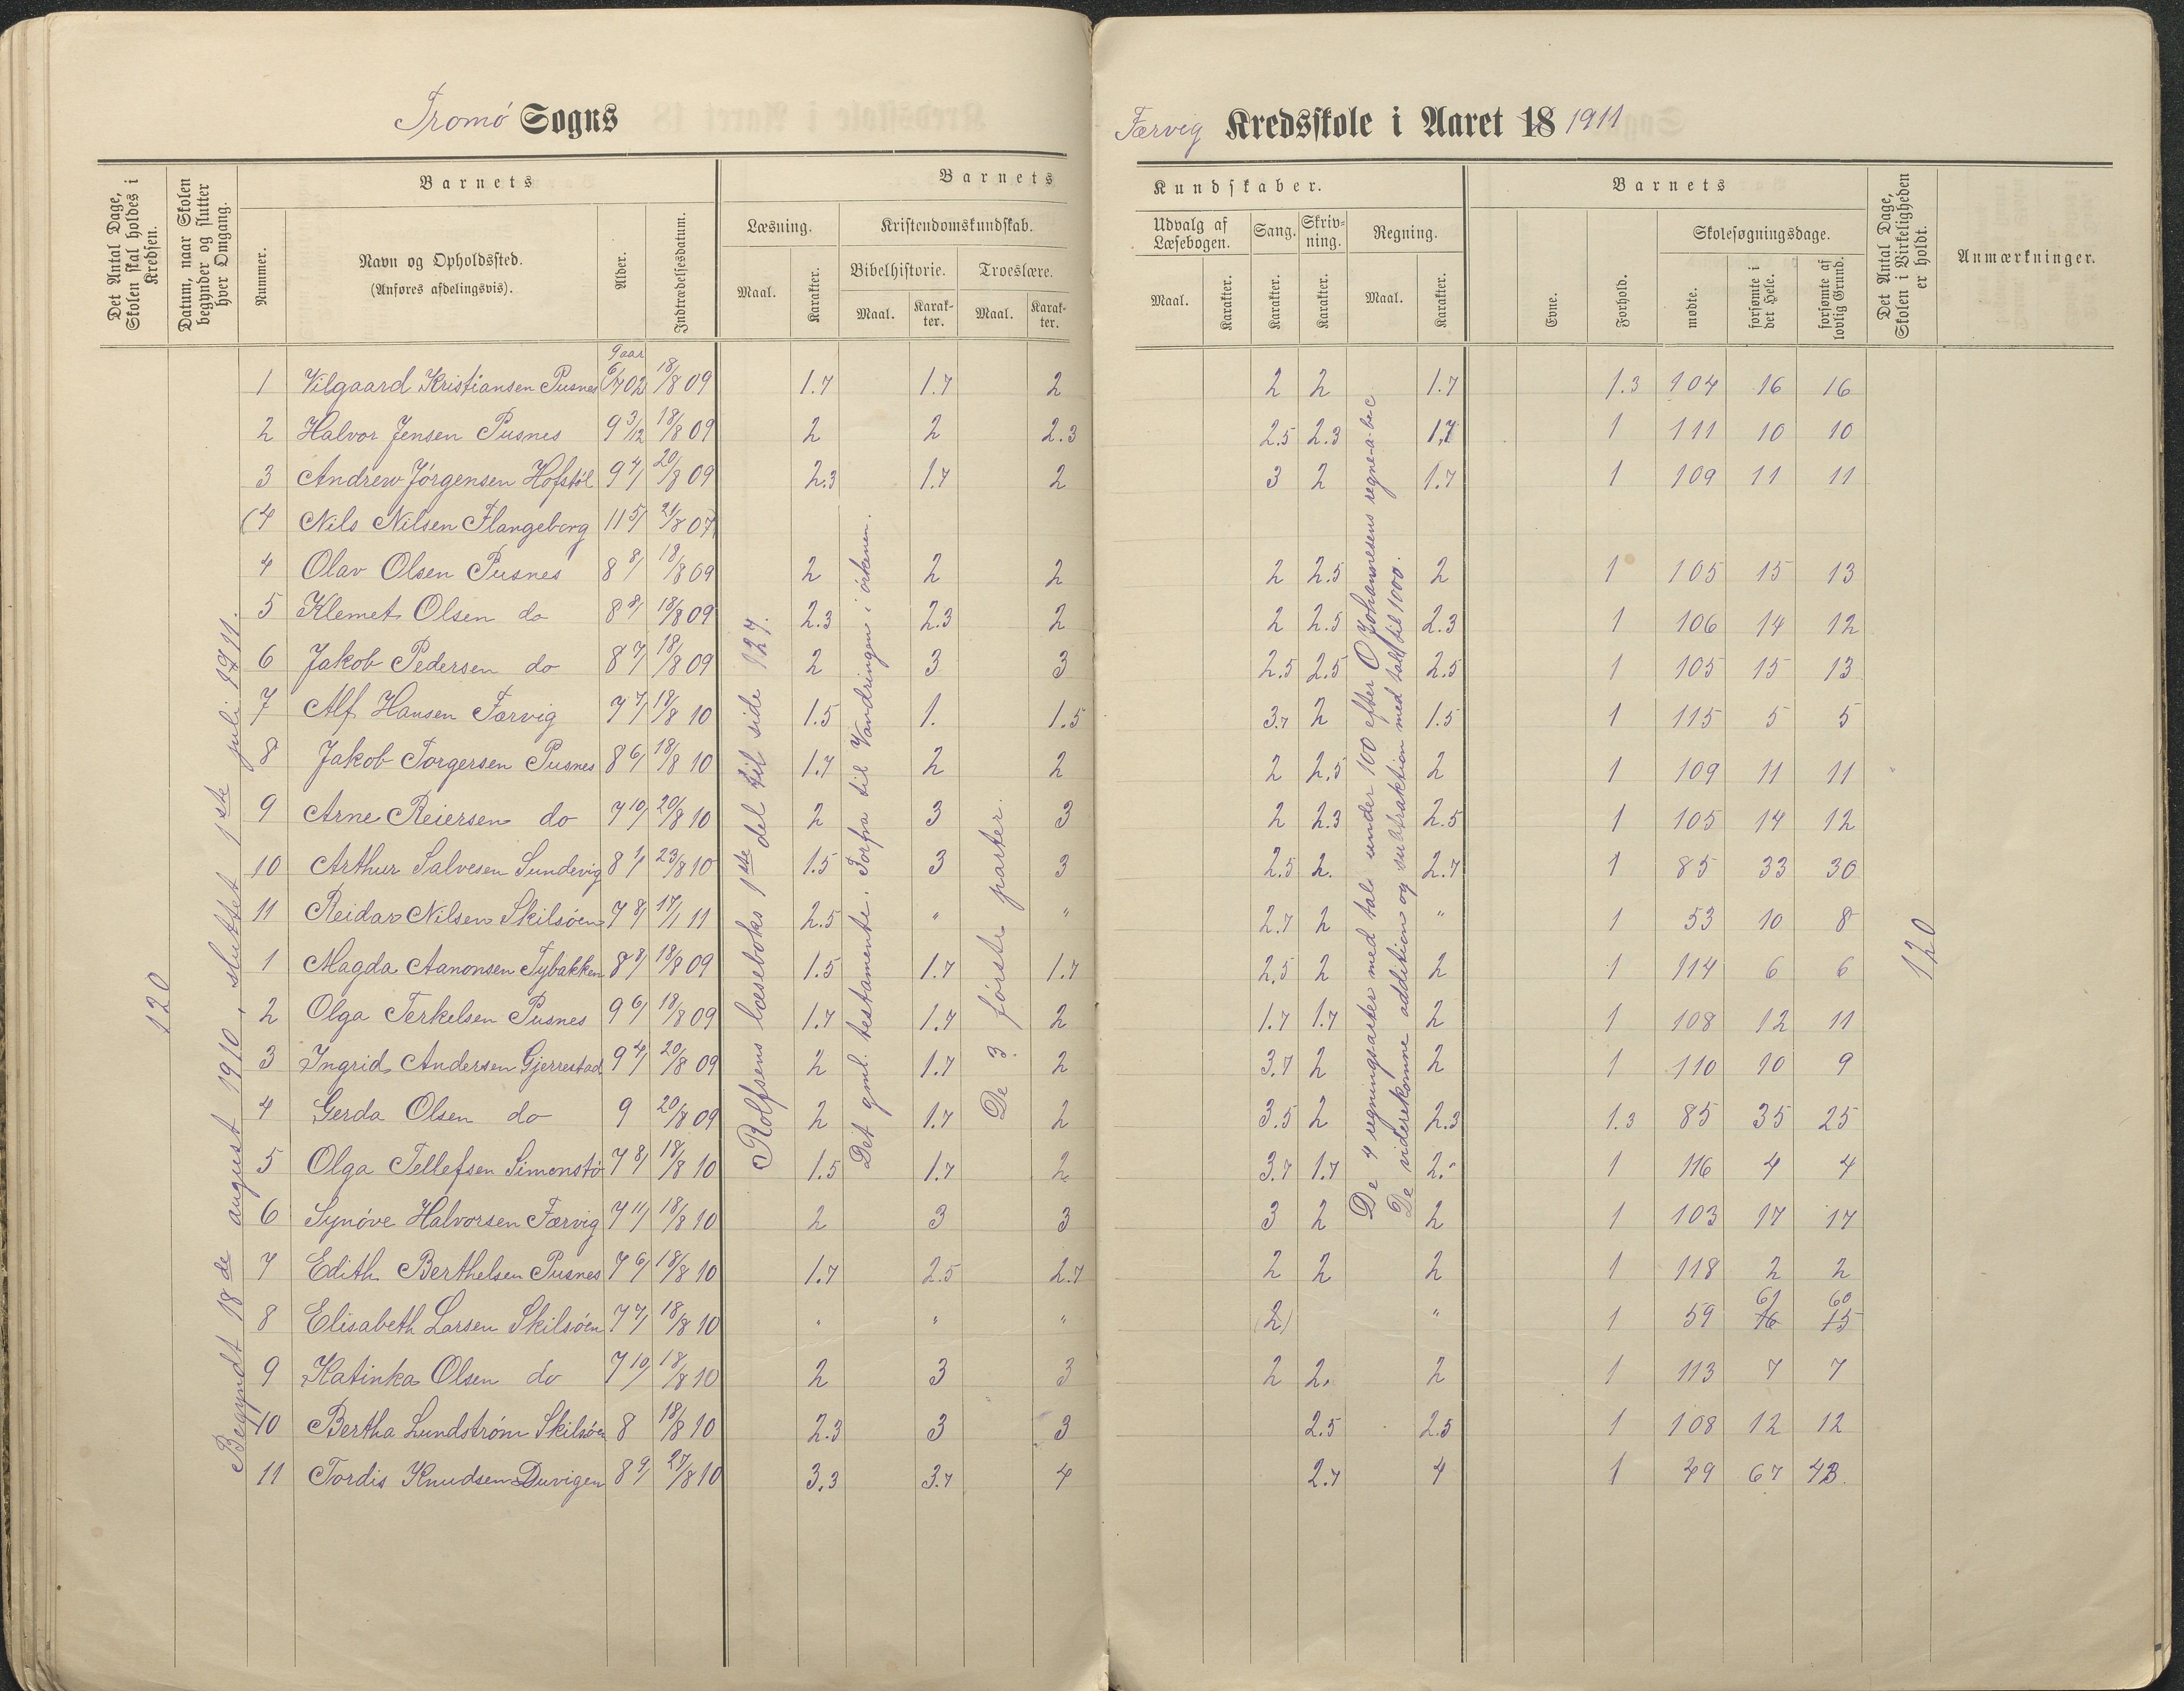 Tromø Sogns
Færvig Kredsskole i Aaret 18 1911
Det Antal Dage, Skolen skal holdes i Kredsen.
Datum, naar Skolen begynder og slutter hver Omgang.
Barnets
Nummer.
Navn og Opholdssted. (Anføres afdelingsvis).
Alder.
Indtrædelsesdatum.
Barnets
Læsning.
Maal.
Karakter.
Kristendomskundskab.
Bibelhistorie.
Maal.
Karakter.
Troeslære.
Maal.
Karakter.
Kundskaber.
Udvalg af Læsebogen.
Maal.
Karakter.
Sang.
Karakter.
Skrivning.
Karakter.
Regning.
Maal.
Karakter.
Barnets
Evne.
Forhold.
Skolesøgningsdage.
mødte.
forsømte i det Hele.
forsømte af lovlig Grund.
Det Antal Dage, Skolen i Virkeligheden er holdt.
Anmærkninger.
120
Begyndt 18de august 1910, sluttet 1ste juli 1911.
Rolfsens læseboks 1ste del til side 127.
Det gml. testamente. Forfra til Vandringen i ørkenen.
De 3 første parter.
De 4 regningsarter med tal under 100 efter O Johannesens regne-a-b-c
De viderekomne addition og subtraktion med tal til 1000.
120
9 aar
1 Vilgaard Kristiansen Pusnes 6/7 02 18/8 09 1.7 1.7 2 2 2 1.7 1.3 104 16 16
2 Halvor Jensen Pusnes 9 3/12 18/8 09 2 2 2.3 2.5 2.3 1.7 1 111 10 10
3 Andrew Jørgensen Hofstøl 9 4/ 20/8 09 2.3 1.7 2 3 2 1.7 1 109 11 11
(4 Nils Nilsen Flangeborg 11 5/ 21/8 07)
4 Olav Olsen Pusnes 8 8/ 18/8 09 2 2 2 2 2.5 2 1 105 15 13
5 Klemet Olsen do 8 8/ 18/8 09 2.3 2.3 2 2 2.5 2.3 1 106 14 12
6 Jakob Pedersen do 8 7/ 18/8 09 2 3 3 2.5 2.5 2.5 1 105 15 13
7 Alf Hansen Færvig 7 7/ 18/8 10 1.5 1. 1.5 3.7 2 1.5 1 115 5 5
8 Jakob Torgersen Pusnes 8 6/ 18/8 10 1.7 2 2 2 2.5 2 1 109 11 11
9 Arne Reiersen do 7 10/ 20/8 10 2 3 3 2 2.3 2.5 1 105 14 12
10 Arthur Salvesen Sundevig 8 1/ 23/8 10 1.5 3 3 2.5 2. 2.7 1 85 33 30
11 Reidar Nilsen Skilsøen 7 8/ 17/1 11 2.5 " " 2.7 2 " 1 53 10 8
1 Magda Aanonsen Tybakken 8 8/ 18/8 09 1.5 1.7 1.7 2.5 2 2 1 114 6 6
2 Olga Terkelsen Pusnes 9 6/ 18/8 09 1.7 1.7 2 1.7 1.7 2 1 108 12 11
3 Ingrid Andersen Gjerrestad 9 4/ 20/8 09 2 1.7 2 3.7 2 2 1 110 10 9
4 Gerda Olsen do 9 20/8 09 2 1.7 2 3.5 2 2.3 1.3 85 35 25
5 Olga Tellefsen Simonstø 7 8/ 18/8 10 1.5 1.7 2 3.7 1.7 2. 1 116 4 4
6 Synøve Halvorsen Færvig 7 11/ 18/8 10 2 3 3 3 2 2 1 103 17 17
7 Edith Berthelsen Pusnes 7 6/ 18/8 10 1.7 2.5 2.7 2 2 2 1 118 2 2
8 Elisabeth Larsen Skilsøen 7 7/ 18/8 10 " " " (2) " 1 59 61 16 60 15
9 Katinka Olsen do 7 10/ 18/8 10 2 3 3 2 2. 2 1 113 7 7
10 Bertha Lundstrøm Skilsøen 8 18/8 10 2.3 3 3 2.5 2.5 1 108 12 12
11 Tordis Knudsen Duvigen 8 9/ 27/8 10 3.3 3.7 4 2.7 4 1 49 67 43